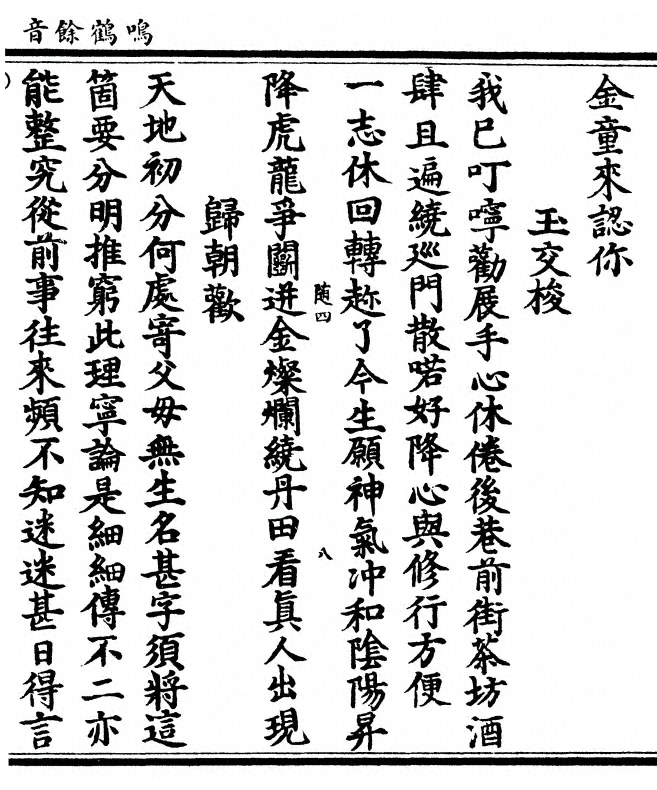 鳴鶴餘音
金童來認你
玉交梭
我已叮嚀勸展手心休倦後巷前街茶坊酒
肆且遍繞廵門散喏好降心與修行方便
一志休回轉趂了今生願神氣冲和陰陽昇
隨四
八
降虎龍爭鬬迸金燦爛繞丹田看眞人出現
歸朝歡
天地初分何處寄父毋無生名甚字須將這
箇要分明推窮此理寧論是細細傳不二亦
能整究從前事往來頻不知迷迷甚日得言